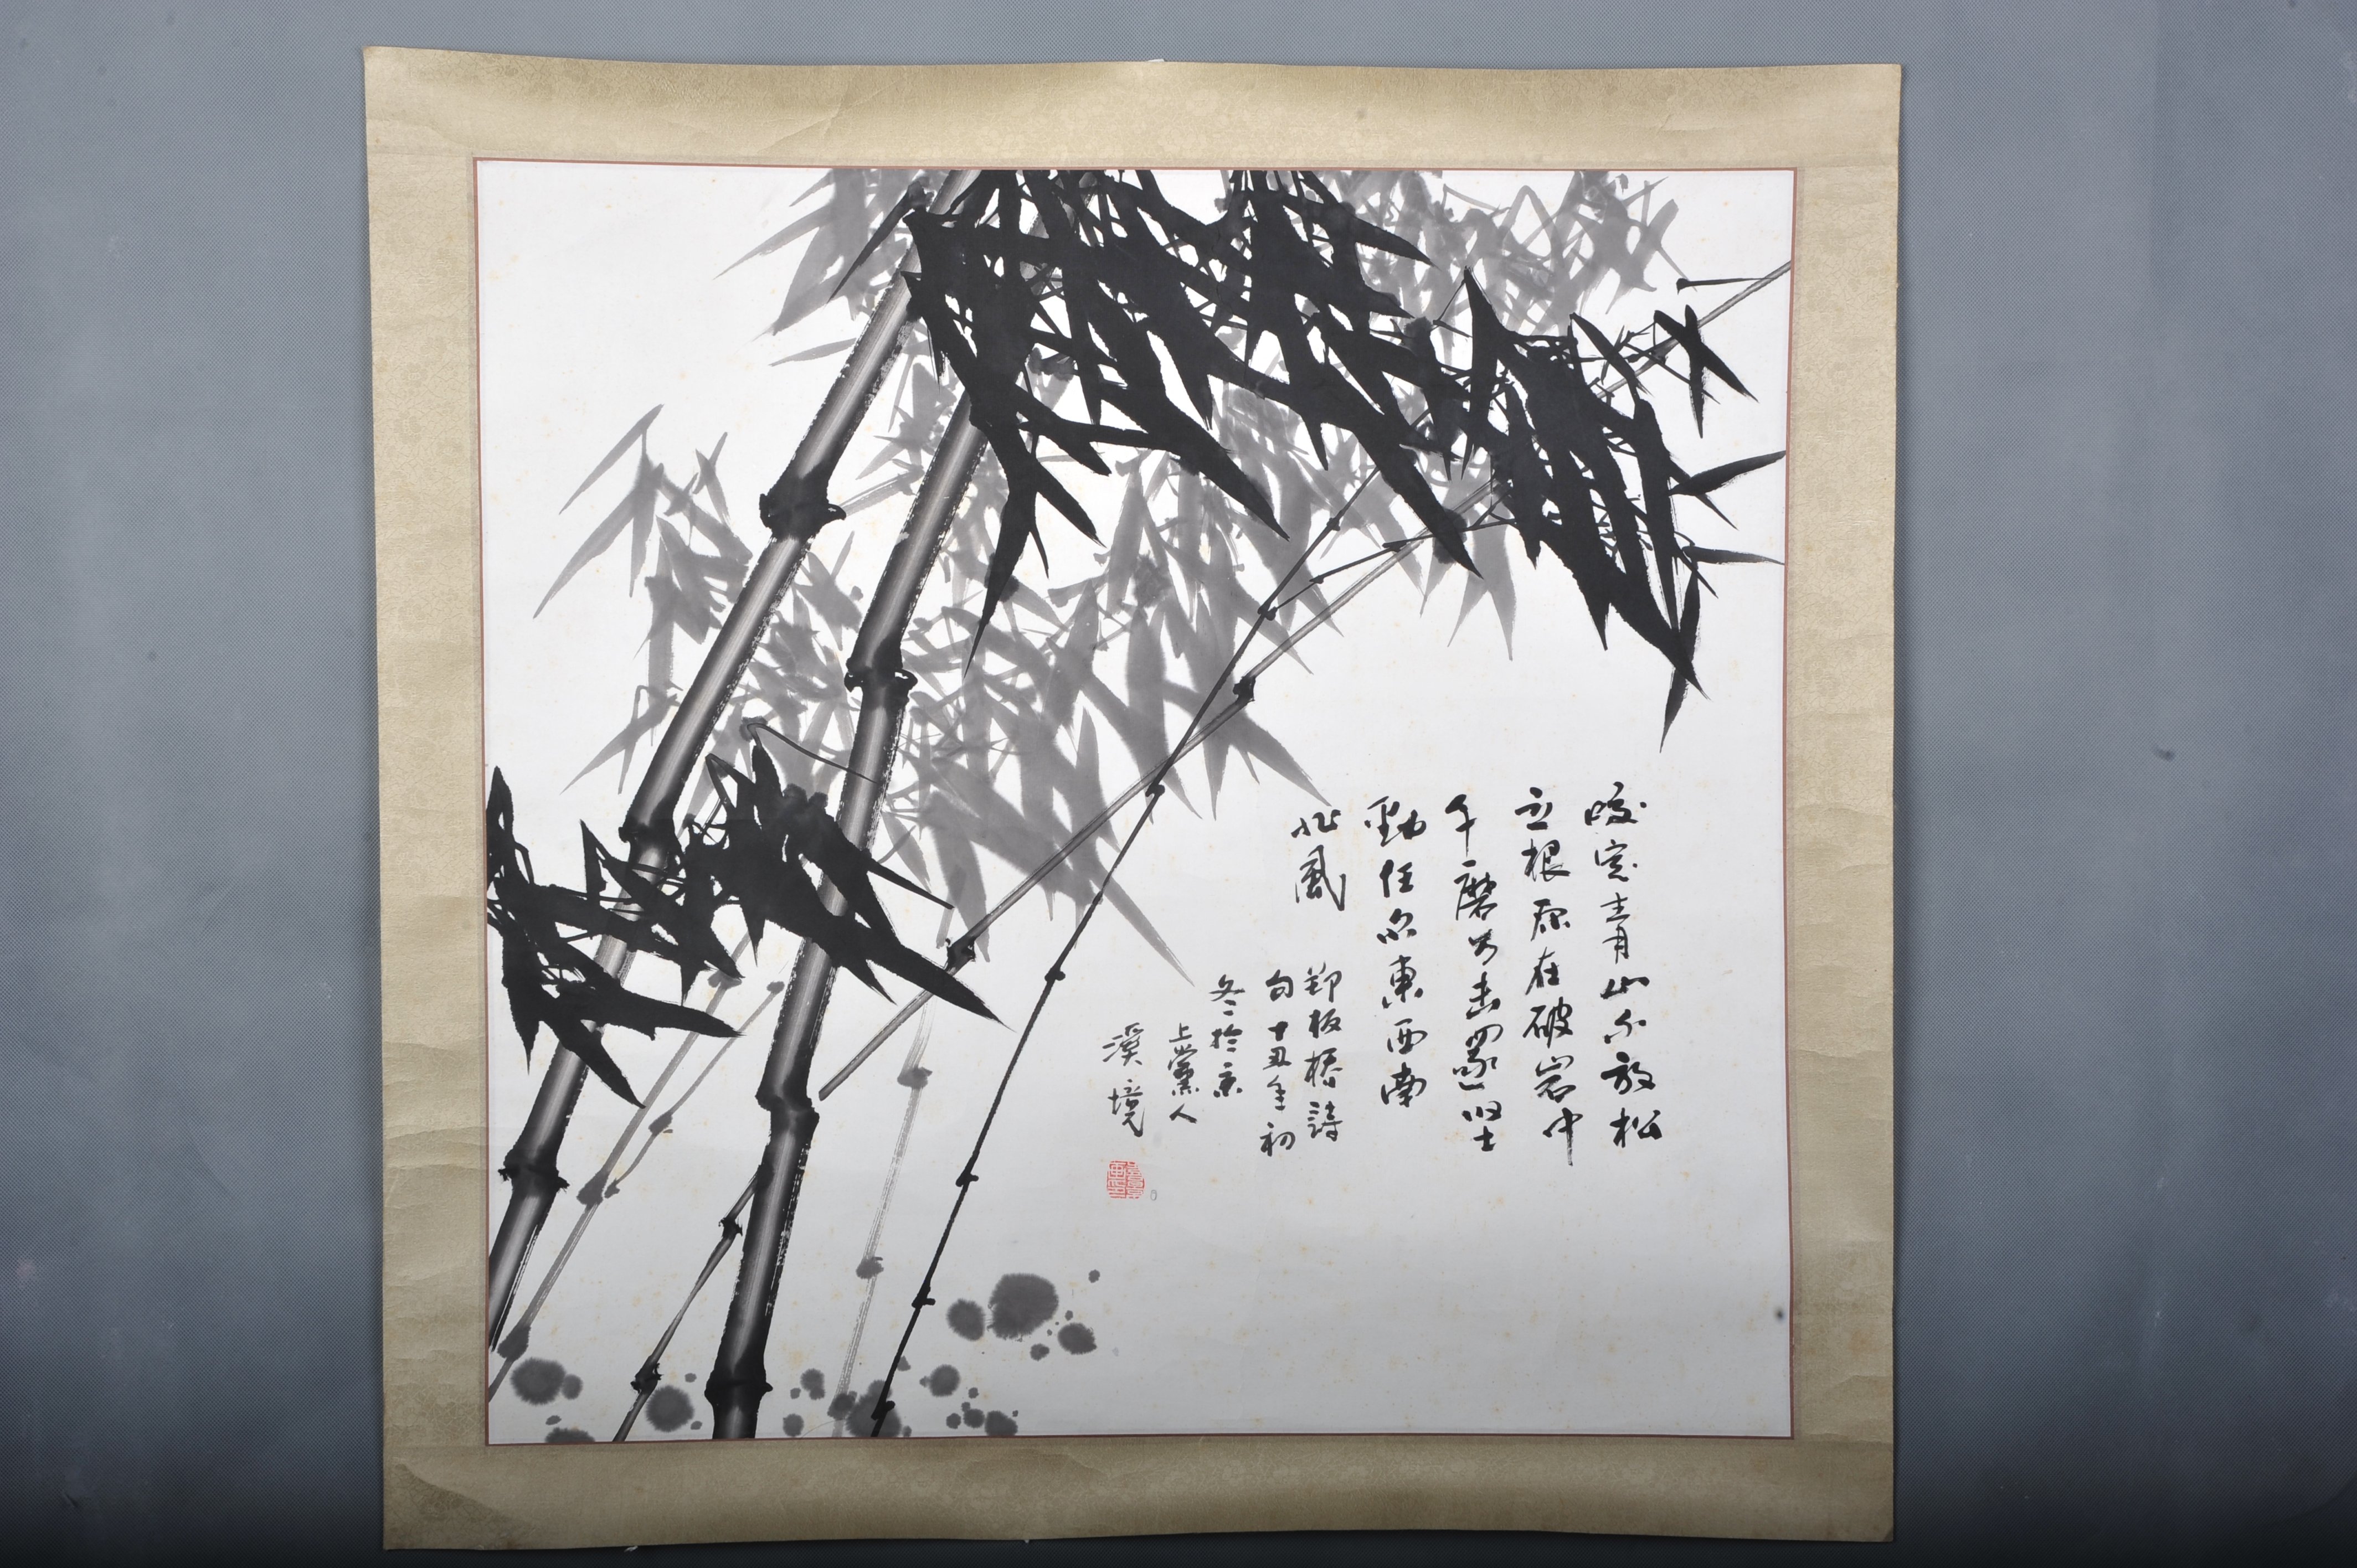 咬定青山不放松
立根原在破岩中
千磨万击還坚
勁任尔東西南
北風
郑板橋詩
句丁丑年初
冬於京
上黨人
溪境